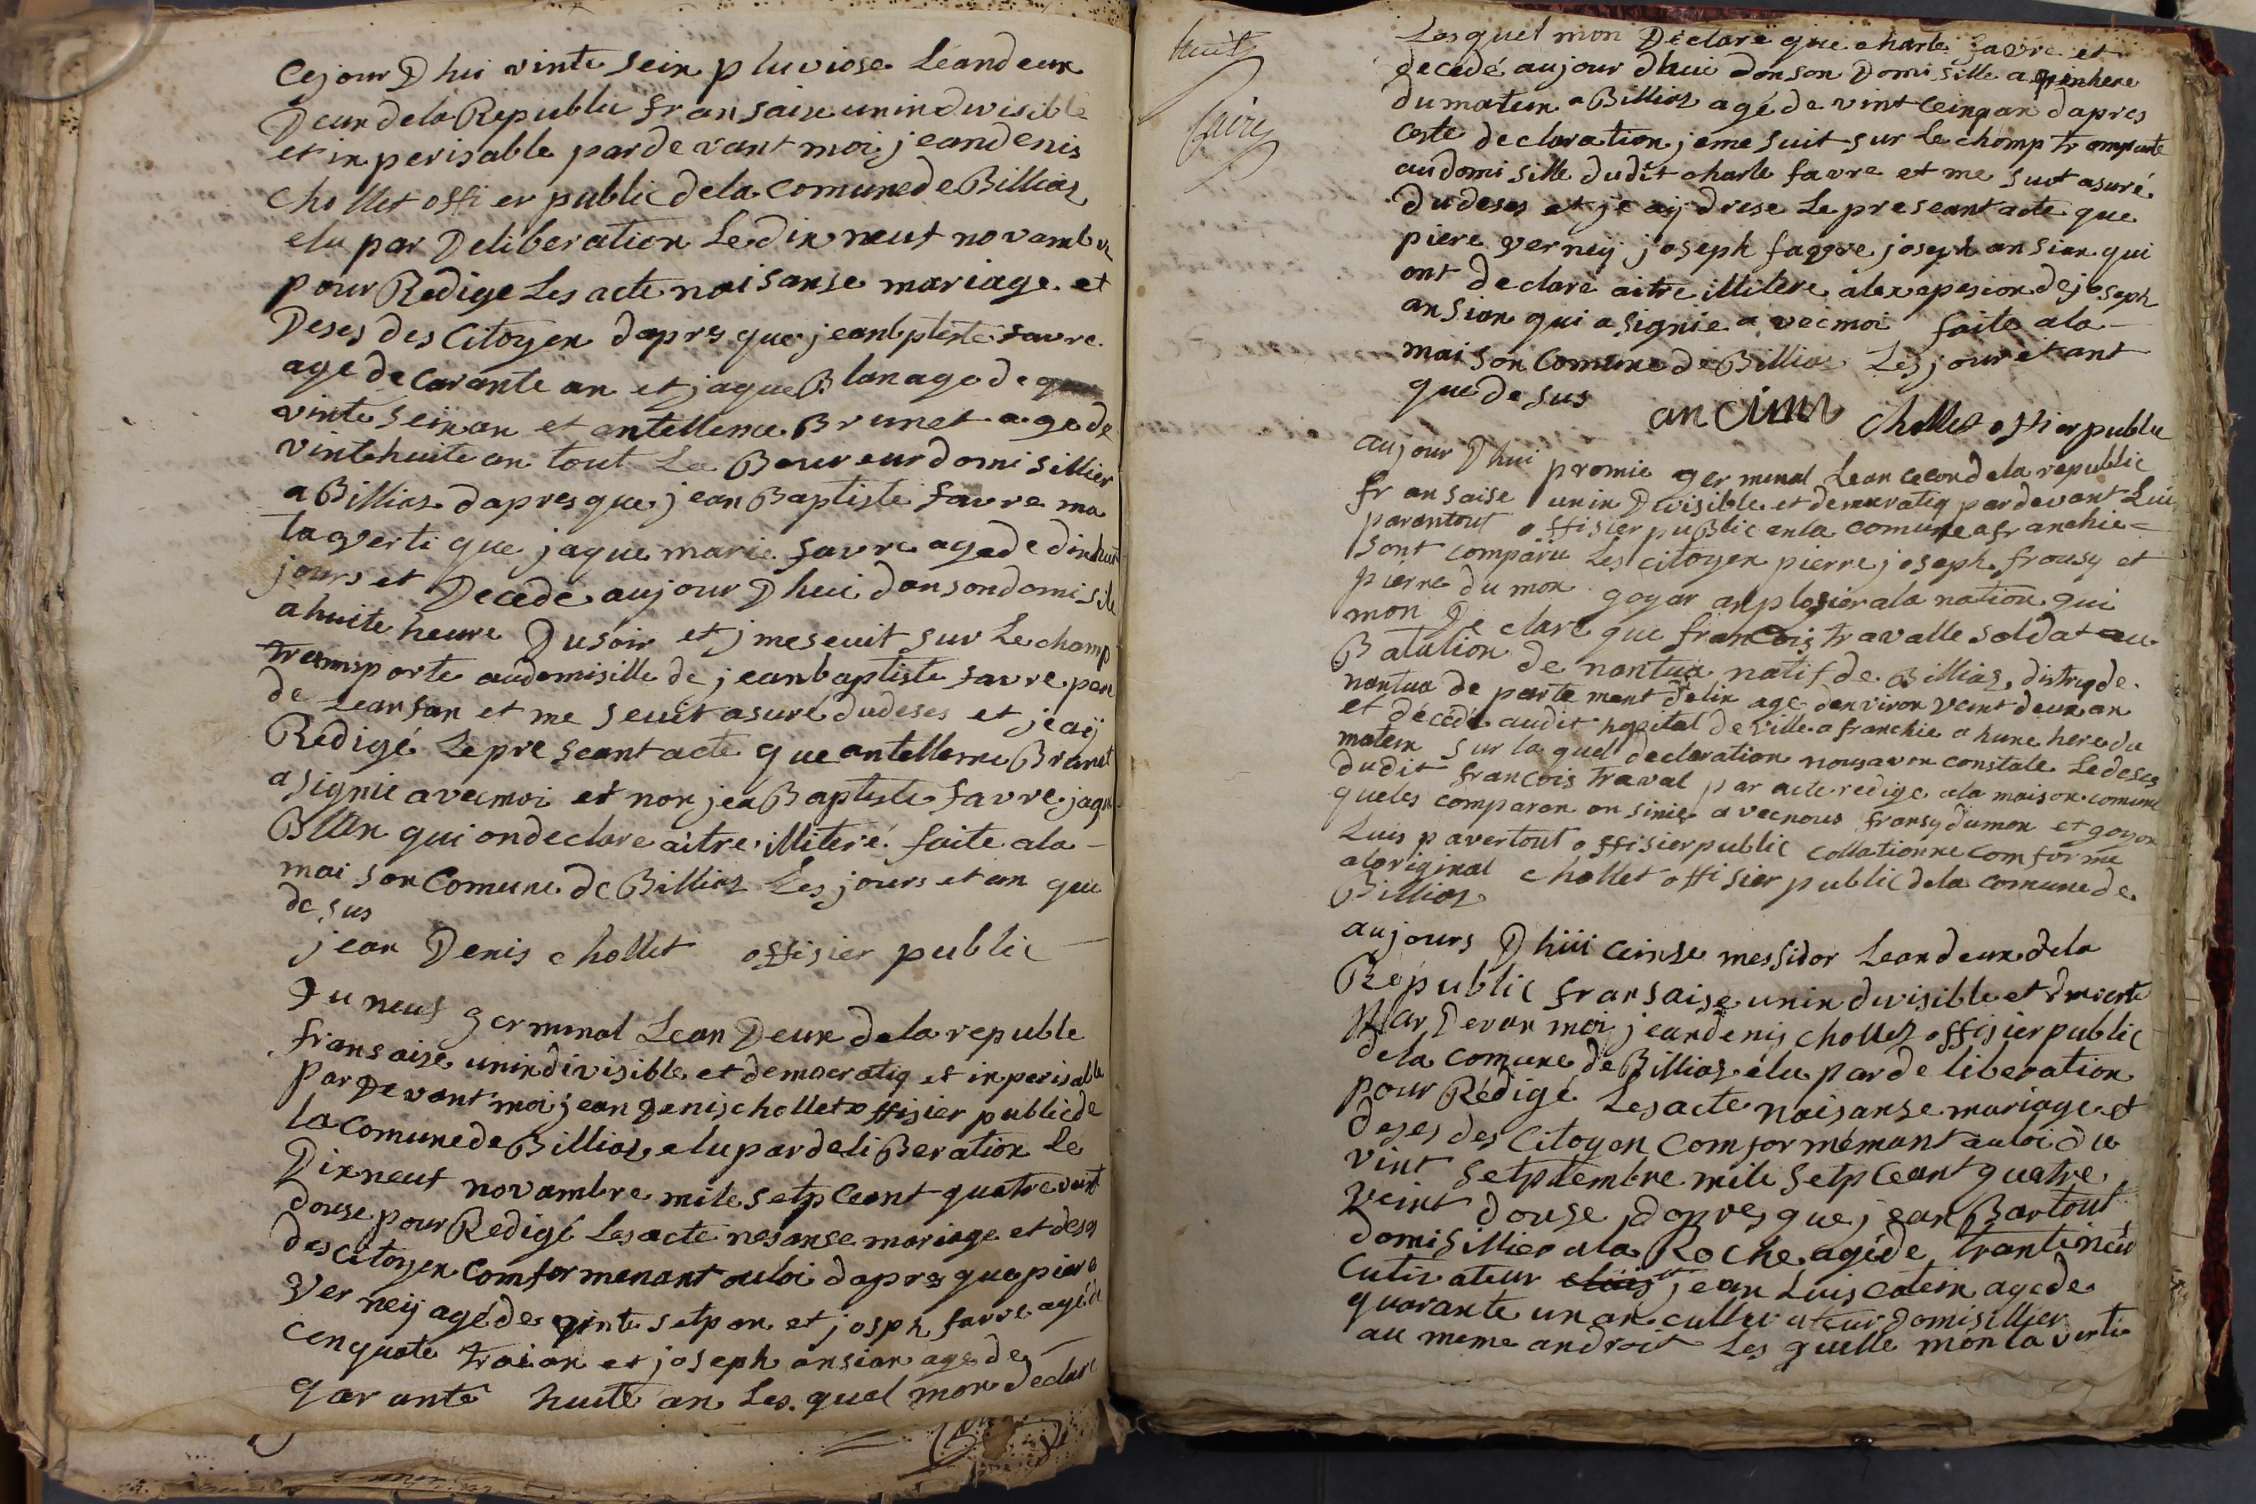 Cejour D hui vinte sein pluviose Leandeux
Deux dela Republu fransaise unindivisible
et inperisable pardevant moi jeandenis
chollet offi er public dela comune de Billiaz
elu par Deliberation Le dix neuf novambre
pour Redige Les acte naisanse mariage et
Deses des Citoyen daprs que jeanbptiste favre
age de carante an et jaque Blan age de
vinte sein an et antelleme Brunet age de
vintehuite an tout Le Boureur domisillier
a Billiaz dapres que jean Baptiste favre ma
laverti que jaque marie favre agede dixhuit
jours et Decede aujour D hui dansondomisile
a huite heure Dusoir et jmeseuit sur Le champ
transporte audomisille de jeanbaptiste favre pere
de Leanfan et me seuit asure dudeses et jeaij
Redigé Lepre seant acte que antelleme Brunet
a signie avecmoi et non jea Baptiste favre jaque
Blan qui ondeclare aitre illiteré faite ala
mai son Comune de Billiaz Les jours et an que
de sus
jean Denis chollet offisier public
Du neuf germinal Lean Deux dela republe
fransaise unindivisible et democratiq et inperisable
par De vant moi jean Denis chollet offisier public de
la comune de Billiaz elu par deli Beration Le
Dixneuf novambre mile setp Ceant quatre vint
douse pour Redigé Les acte nesanse mariage et deses
des citoyen comformenant auloi dapres que piere
Ver neij agé de vinte setp an et josph favre agé de
cenquate troi an et joseph ansian age de
qarante huite an Les quel mon declare
Lesquel mon Declare que charle favre et
decedé aujour dhui danson Domisille a
dumateun a Billiaz agé de vint ceinq an dapres
ceste declaration jeme suit sur Le champ tromporte
audomisille dudit charle favre et me suit asuré
Dudeses et je aij drese Le preseant acte que
piere verneij joseph favre joseph ansian qui
ont declare aitre illitere alexepesion de joseph
ansian qui a signie a vecmoi faite ala
maison comune de Billia Les jour et ant
que de sus
ancian chollet offi er publu
aujour Dhui promie germinal Lean cecon dela republic
fransaise unin Divisible et demecratiq par devant Lui
parantout offisier puBlic enla comune afranchie
sont comparu Les citoyen pierre joseph frousy et
pierre dumon goyar anplosier ala nation qui
mon De clare que francois travalle soldat au
Batalion de nantua natif de Billiaz, distriq de
nantua de parte ment delin age denviron veint deux an
et décédé audit hopital de ville a franchie a hune here du
matein sur la quel declaration nousavon constate Ledeses
dudit francois traval par acte redige ala maison comune
queles comparan on sinie a vecnous fransy dumon et goyon
Luis pavertout offisierpublic collationne comforme
aloriginal chollet offi sier public dela comune de
Billiaz
aujours Dhiii ceinse messidor Leandeux dela
Républic fransaise unin divisible et
par Devan moi jeandenis chollet offisierpublic
dela comune de Billiaz élu par de liberation
pour Rédigé Lesacte naisanse mariage et
deses des Citoyen Comformémant auloi du
vint setptembre mile setp Ceant quatre
veint douse dapres que jean Bartout
domisillier ala Roche agé de
Cutivateur jean Luis Catein agede
quarante un an domisillier
au meme androit Les quelle mon la verti